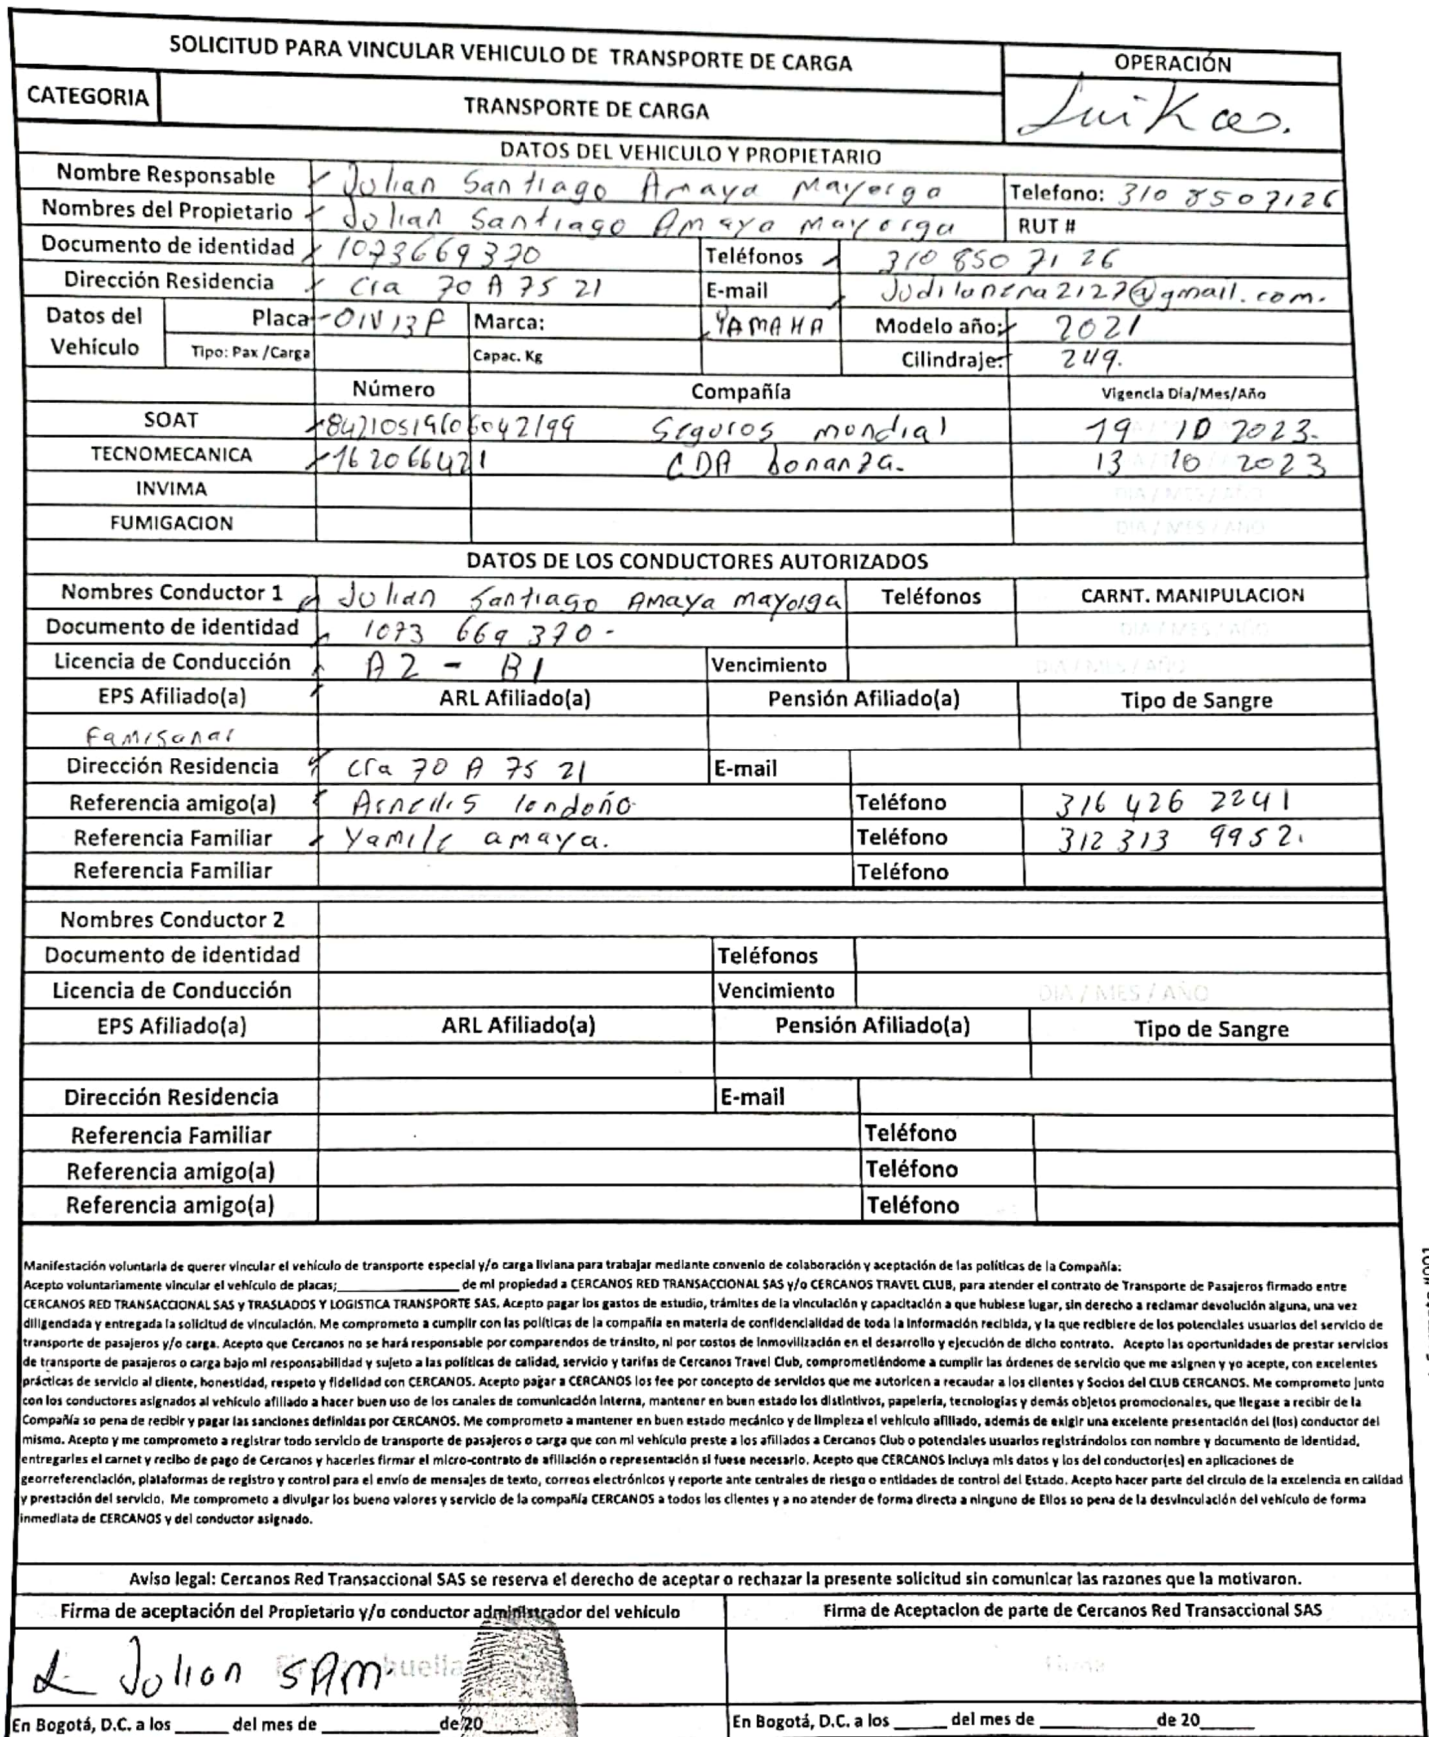 SOLICITUD PARA VINCULAR VEHICULO DE TRANSPORTE DE CARGA OPERACIÓN
CATEGORIA TRANSPORTE DE CARGA
DATOS DEL VEHICULO Y PROPIETARIO
Nombre Responsable Julian Santiago Amaya Mayorga Telefono: 310 8507126
Nombres del Propietario Julian Santiago Amaya Mayorga RUT #
Documento de identidad 1073669370 Teléfonos 310 850 71 26
Dirección Residencia Cra 70 A 75 21 E-mail Judilonena2127@gmail.com.
Datos del Vehículo Placa OIV13F Marca: YAMAHA Modelo año: 2021
Tipo: Pax /Carga Capac. Kg Cilindraje: 249.
Número Compañía Vigencia Día/Mes/Año
SOAT Seguros mondial 19 10 2023.
TECNOMECANICA 162066421 CDA bonanza. 13 10 2023
INVIMA DIA / MES / AÑO
FUMIGACION DIA / MES / AÑO
DATOS DE LOS CONDUCTORES AUTORIZADOS
Nombres Conductor 1 Julian Santiago Amaya mayorga Teléfonos CARNT. MANIPULACION
Documento de identidad 1073 669 370- DIA / MES / AÑO
Licencia de Conducción A2 - B1 Vencimiento DIA / MES / AÑO
EPS Afiliado(a) ARL Afiliado(a) Pensión Afiliado(a) Tipo de Sangre
Famisanar
Dirección Residencia Cra 70 A 75 21 E-mail
Referencia amigo(a) londoño Teléfono 316 426 2241
Referencia Familiar Yamile amaya. Teléfono 312 313 9952.
Referencia Familiar Teléfono
Nombres Conductor 2
Documento de identidad Teléfonos
Licencia de Conducción Vencimiento DIA / MES / AÑO
EPS Afiliado(a) ARL Afiliado(a) Pensión Afiliado(a) Tipo de Sangre
Dirección Residencia E-mail
Referencia Familiar Teléfono
Referencia amigo(a) Teléfono
Referencia amigo(a) Teléfono
Manifestación voluntaria de querer vincular el vehículo de transporte especial y/o carga liviana para trabajar mediante convenio de colaboración y aceptación de las políticas de la Compañía:
Acepto voluntariamente vincular el vehículo de placas;____________ de mi propiedad a CERCANOS RED TRANSACCIONAL SAS y/o CERCANOS TRAVEL CLUB, para atender el contrato de Transporte de Pasajeros firmado entre
CERCANOS RED TRANSACCIONAL SAS y TRASLADOS Y LOGISTICA TRANSPORTE SAS. Acepto pagar los gastos de estudio, trámites de la vinculación y capacitación a que hubiese lugar, sin derecho a reclamar devolución alguna, una vez
diligenciada y entregada la solicitud de vinculación. Me comprometo a cumplir con las políticas de la compañía en materia de confidencialidad de toda la información recibida, y la que recibiere de los potenciales usuarios del servicio de
transporte de pasajeros y/o carga. Acepto que Cercanos no se hará responsable por comparendos de tránsito, ni por costos de inmovilización en el desarrollo y ejecución de dicho contrato. Acepto las oportunidades de prestar servicios
de transporte de pasajeros o carga bajo mi responsabilidad y sujeto a las políticas de calidad, servicio y tarifas de Cercanos Travel Club, comprometiéndome a cumplir las órdenes de servicio que me asignen y yo acepte, con excelentes
prácticas de servicio al cliente, honestidad, respeto y fidelidad con CERCANOS. Acepto pagar a CERCANOS los fee por concepto de servicios que me autoricen a recaudar a los clientes y Socios del CLUB CERCANOS. Me comprometo junto
con los conductores asignados al vehículo afiliado a hacer buen uso de los canales de comunicación interna, mantener en buen estado los distintivos, papelería, tecnologías y demás objetos promocionales, que llegase a recibir de la
Compañía so pena de recibir y pagar las sanciones definidas por CERCANOS. Me comprometo a mantener en buen estado mecánico y de limpieza el vehículo afiliado, además de exigir una excelente presentación del (los) conductor del
mismo. Acepto y me comprometo a registrar todo servicio de transporte de pasajeros o carga que con mi vehículo preste a los afiliados a Cercanos Club o potenciales usuarios registrándolos con nombre y documento de identidad,
entregarles el carnet y recibo de pago de Cercanos y hacerles firmar el micro-contrato de afiliación o representación si fuese necesario. Acepto que CERCANOS incluya mis datos y los del conductor(es) en aplicaciones de
georreferenciación, plataformas de registro y control para el envío de mensajes de texto, correos electrónicos y reporte ante centrales de riesgo o entidades de control del Estado. Acepto hacer parte del circulo de la excelencia en calidad
y prestación del servicio. Me comprometo a divulgar los bueno valores y servicio de la compañía CERCANOS a todos los clientes y a no atender de forma directa a ninguno de Ellos so pena de la desvinculación del vehículo de forma
inmediata de CERCANOS y del conductor asignado.
Aviso legal: Cercanos Red Transaccional SAS se reserva el derecho de aceptar o rechazar la presente solicitud sin comunicar las razones que la motivaron.
Firma de aceptación del Propietario y/o conductor administrador del vehículo Firma de Aceptacion de parte de Cercanos Red Transaccional SAS
Julian SAM huella Firma
En Bogotá, D.C. a los _____ del mes de _________ de 20_____ En Bogotá, D.C. a los _____ del mes de _________ de 20_____